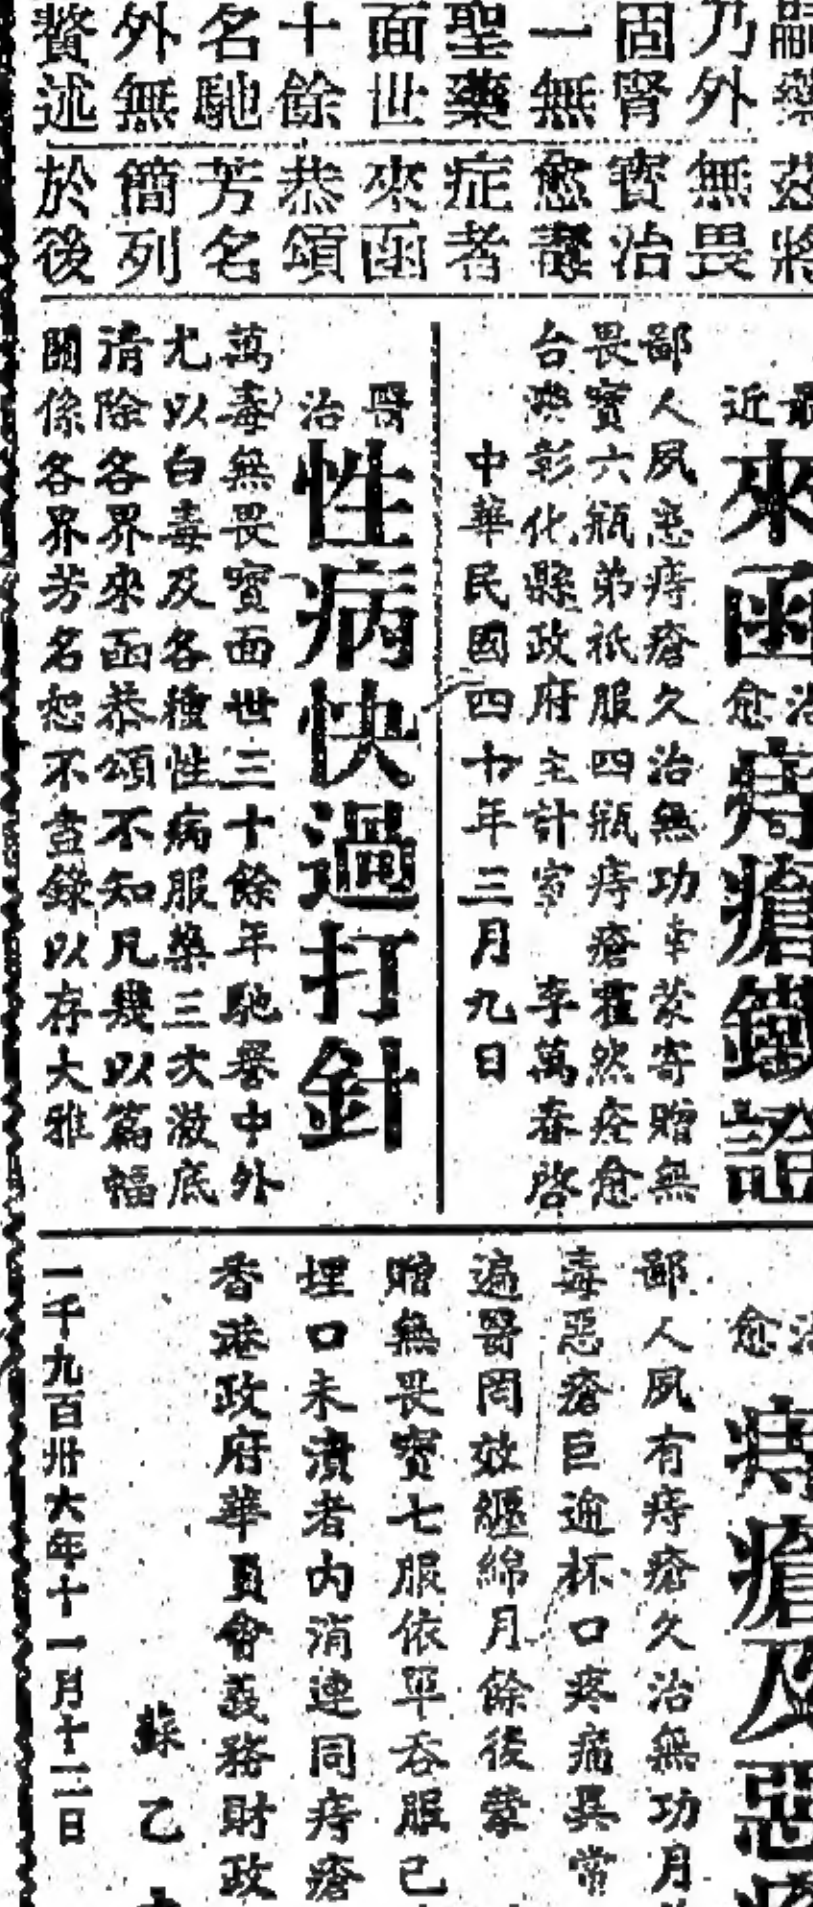 茲將
乃外無畏
固腎寶治
一無愈毒
聖藥症者
面世來函
十餘恭頌
名馳芳名
外無簡列
贅述於後
最近
來函
治愈
痔瘡鐵證
鄙人夙患痔瘡久治無功幸蒙寄贈無
畏寶六瓶弟祇服四瓶痔瘡霍然痊愈
台灣彰化縣政府主計室 李萬春啓
中華民國四十年三月九日
醫治
性病快過打針
萬毒無畏寶面世三十餘年馳譽中外
尤以白毒及各種性病服藥三次澈底
清除各界來函恭頌不知凡幾以篇幅
關係各界芳名恕不盡錄以存大雅
治愈
痔瘡及惡
鄙人夙有痔瘡久治無功月
毒惡瘡巨逾杯口疼痛異常
遍醫罔效纏綿月餘後蒙
贈無畏寶七服依單吞服已
埋口未潰者內消連同痔瘡
香港政府華員會義務財政
蘇乙
一千九百卅六年十一月十二日